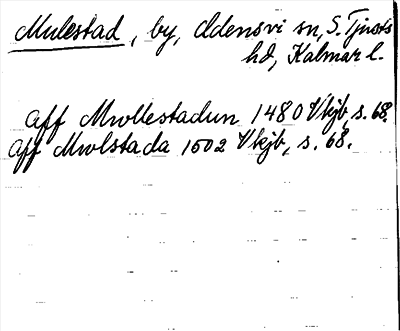 Mulestad, by, Odensvi sn, S. Tjusts
hd, Kalmar l.
aff Mwllestadun 1480 Vkjb, s. 68.
Aff Mwlstada 1502 Vkjb, s. 68.